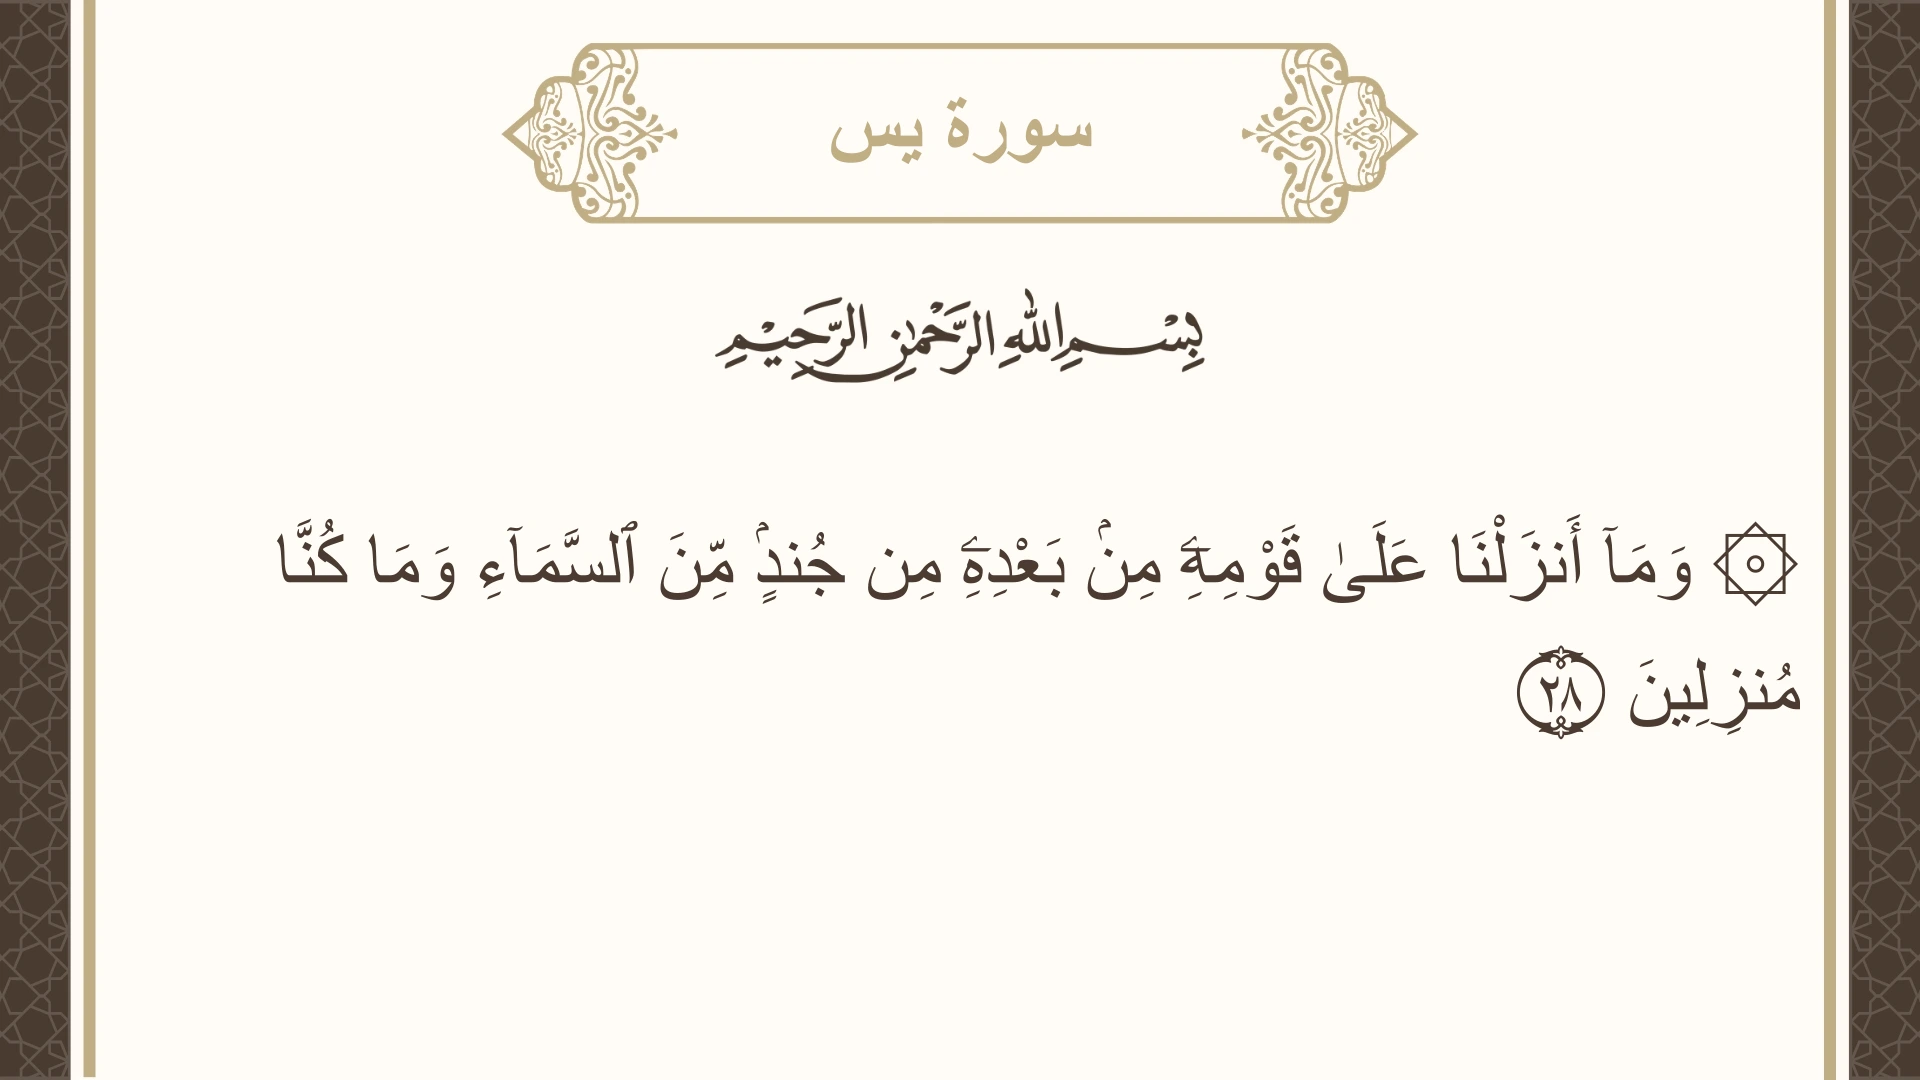 سورة يس
بِسْمِ اللهِ الرَّحْمٰنِ الرَّحِيْمِ
۞ وَمَآ أَنزَلْنَا عَلَىٰ قَوْمِهِۦ مِنۢ بَعْدِهِۦ مِن جُندٍۢ مِّنَ ٱلسَّمَآءِ وَمَا كُنَّا
مُنزِلِينَ ٢٨